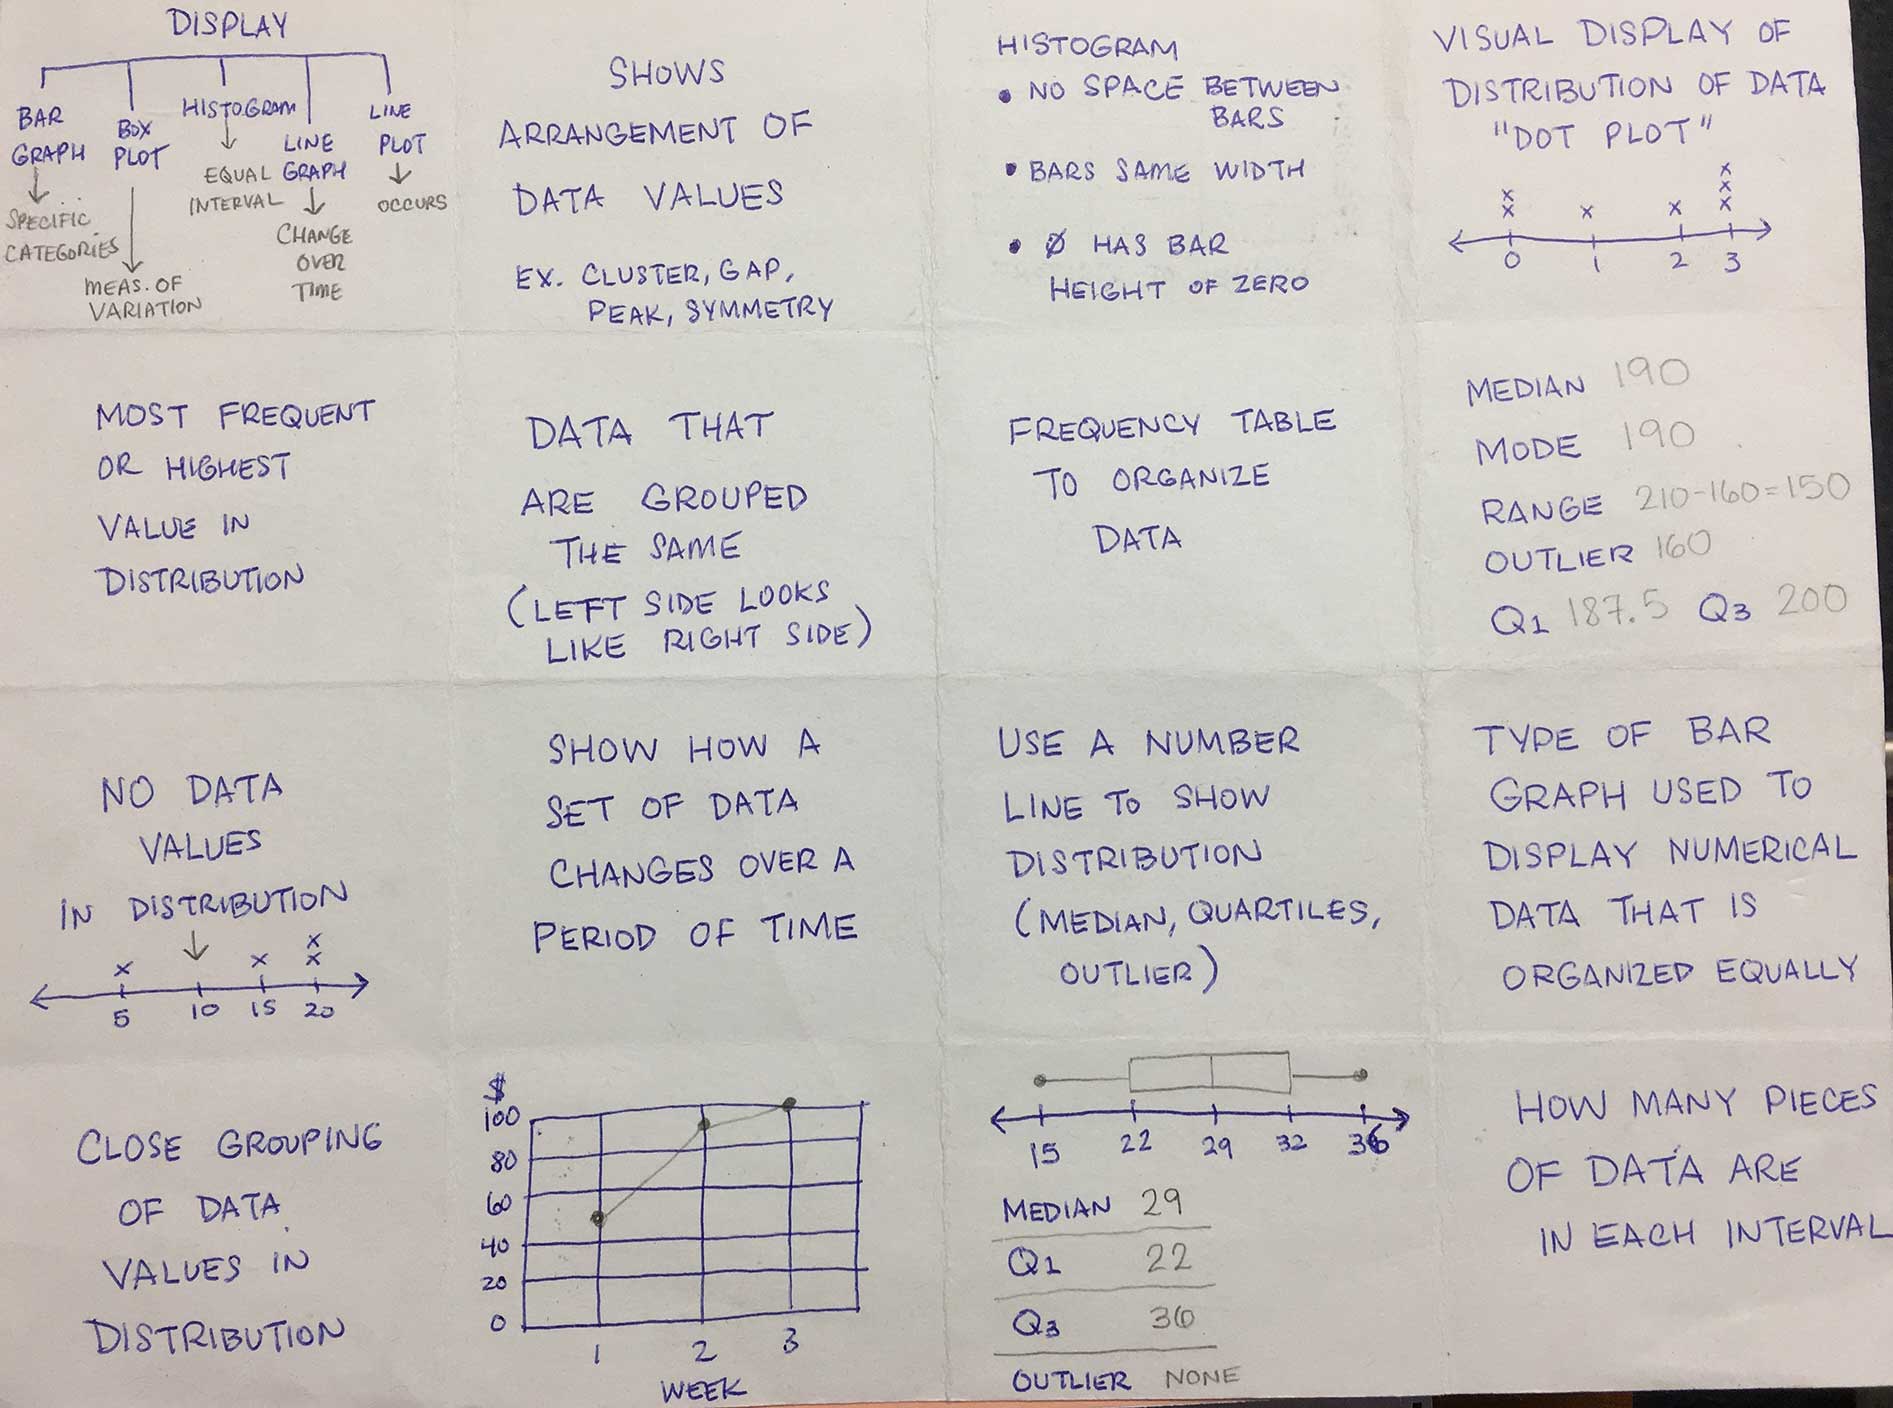 DISPLAY
BAR
GRAPH
SPECIFIC
CATEGORIES
BOX
PLOT
MEAS. OF
VARIATION
HISTOGRAM
EQUAL
INTERVAL
LINE
GRAPH
CHANGE
OVER
TIME
LINE
PLOT
OCCURS
SHOWS
ARRANGEMENT OF
DATA VALUES
EX. CLUSTER, GAP,
PEAK, SYMMETRY
HISTOGRAM
• NO SPACE BETWEEN
BARS
• BARS SAME WIDTH
• Ø HAS BAR
HEIGHT OF ZERO
VISUAL DISPLAY OF
DISTRIBUTION OF DATA
"DOT PLOT"
x
x x
x x x x
0 1 2 3
MOST FREQUENT
OR HIGHEST
VALUE IN
DISTRIBUTION
DATA THAT
ARE GROUPED
THE SAME
(LEFT SIDE LOOKS
LIKE RIGHT SIDE)
FREQUENCY TABLE
TO ORGANIZE
DATA
MEDIAN 190
MODE 190
RANGE 210-160=150
OUTLIER 160
Q1 187.5 Q3 200
NO DATA
VALUES
IN DISTRIBUTION
x
x x x
5 10 15 20
SHOW HOW A
SET OF DATA
CHANGES OVER A
PERIOD OF TIME
USE A NUMBER
LINE TO SHOW
DISTRIBUTION
(MEDIAN, QUARTILES,
OUTLIER)
TYPE OF BAR
GRAPH USED TO
DISPLAY NUMERICAL
DATA THAT IS
ORGANIZED EQUALLY
CLOSE GROUPING
OF DATA
VALUES IN
DISTRIBUTION
$
100
80
60
40
20
0
1 2 3
WEEK
15 22 29 32 36
MEDIAN 29
Q1 22
Q3 36
OUTLIER NONE
HOW MANY PIECES
OF DATA ARE
IN EACH INTERVAL